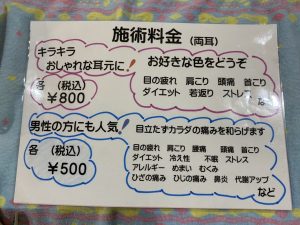 施術料金 (両耳)
キラキラ
おしゃれな耳元に!
お好きな色をどうぞ
各 (税込)
¥800
目の疲れ 肩こり 頭痛 首こり
ダイエット 若返り ストレス
など
男性の方にも人気!
目立たずカラダの痛みを和らげます
各 (税込)
¥500
目の疲れ 肩こり 腰痛 頭痛 首こり
ダイエット 冷え性 不眠 ストレス
アレルギー めまい むくみ
ひざの痛み ひじの痛み 鼻炎 代謝アップ
など